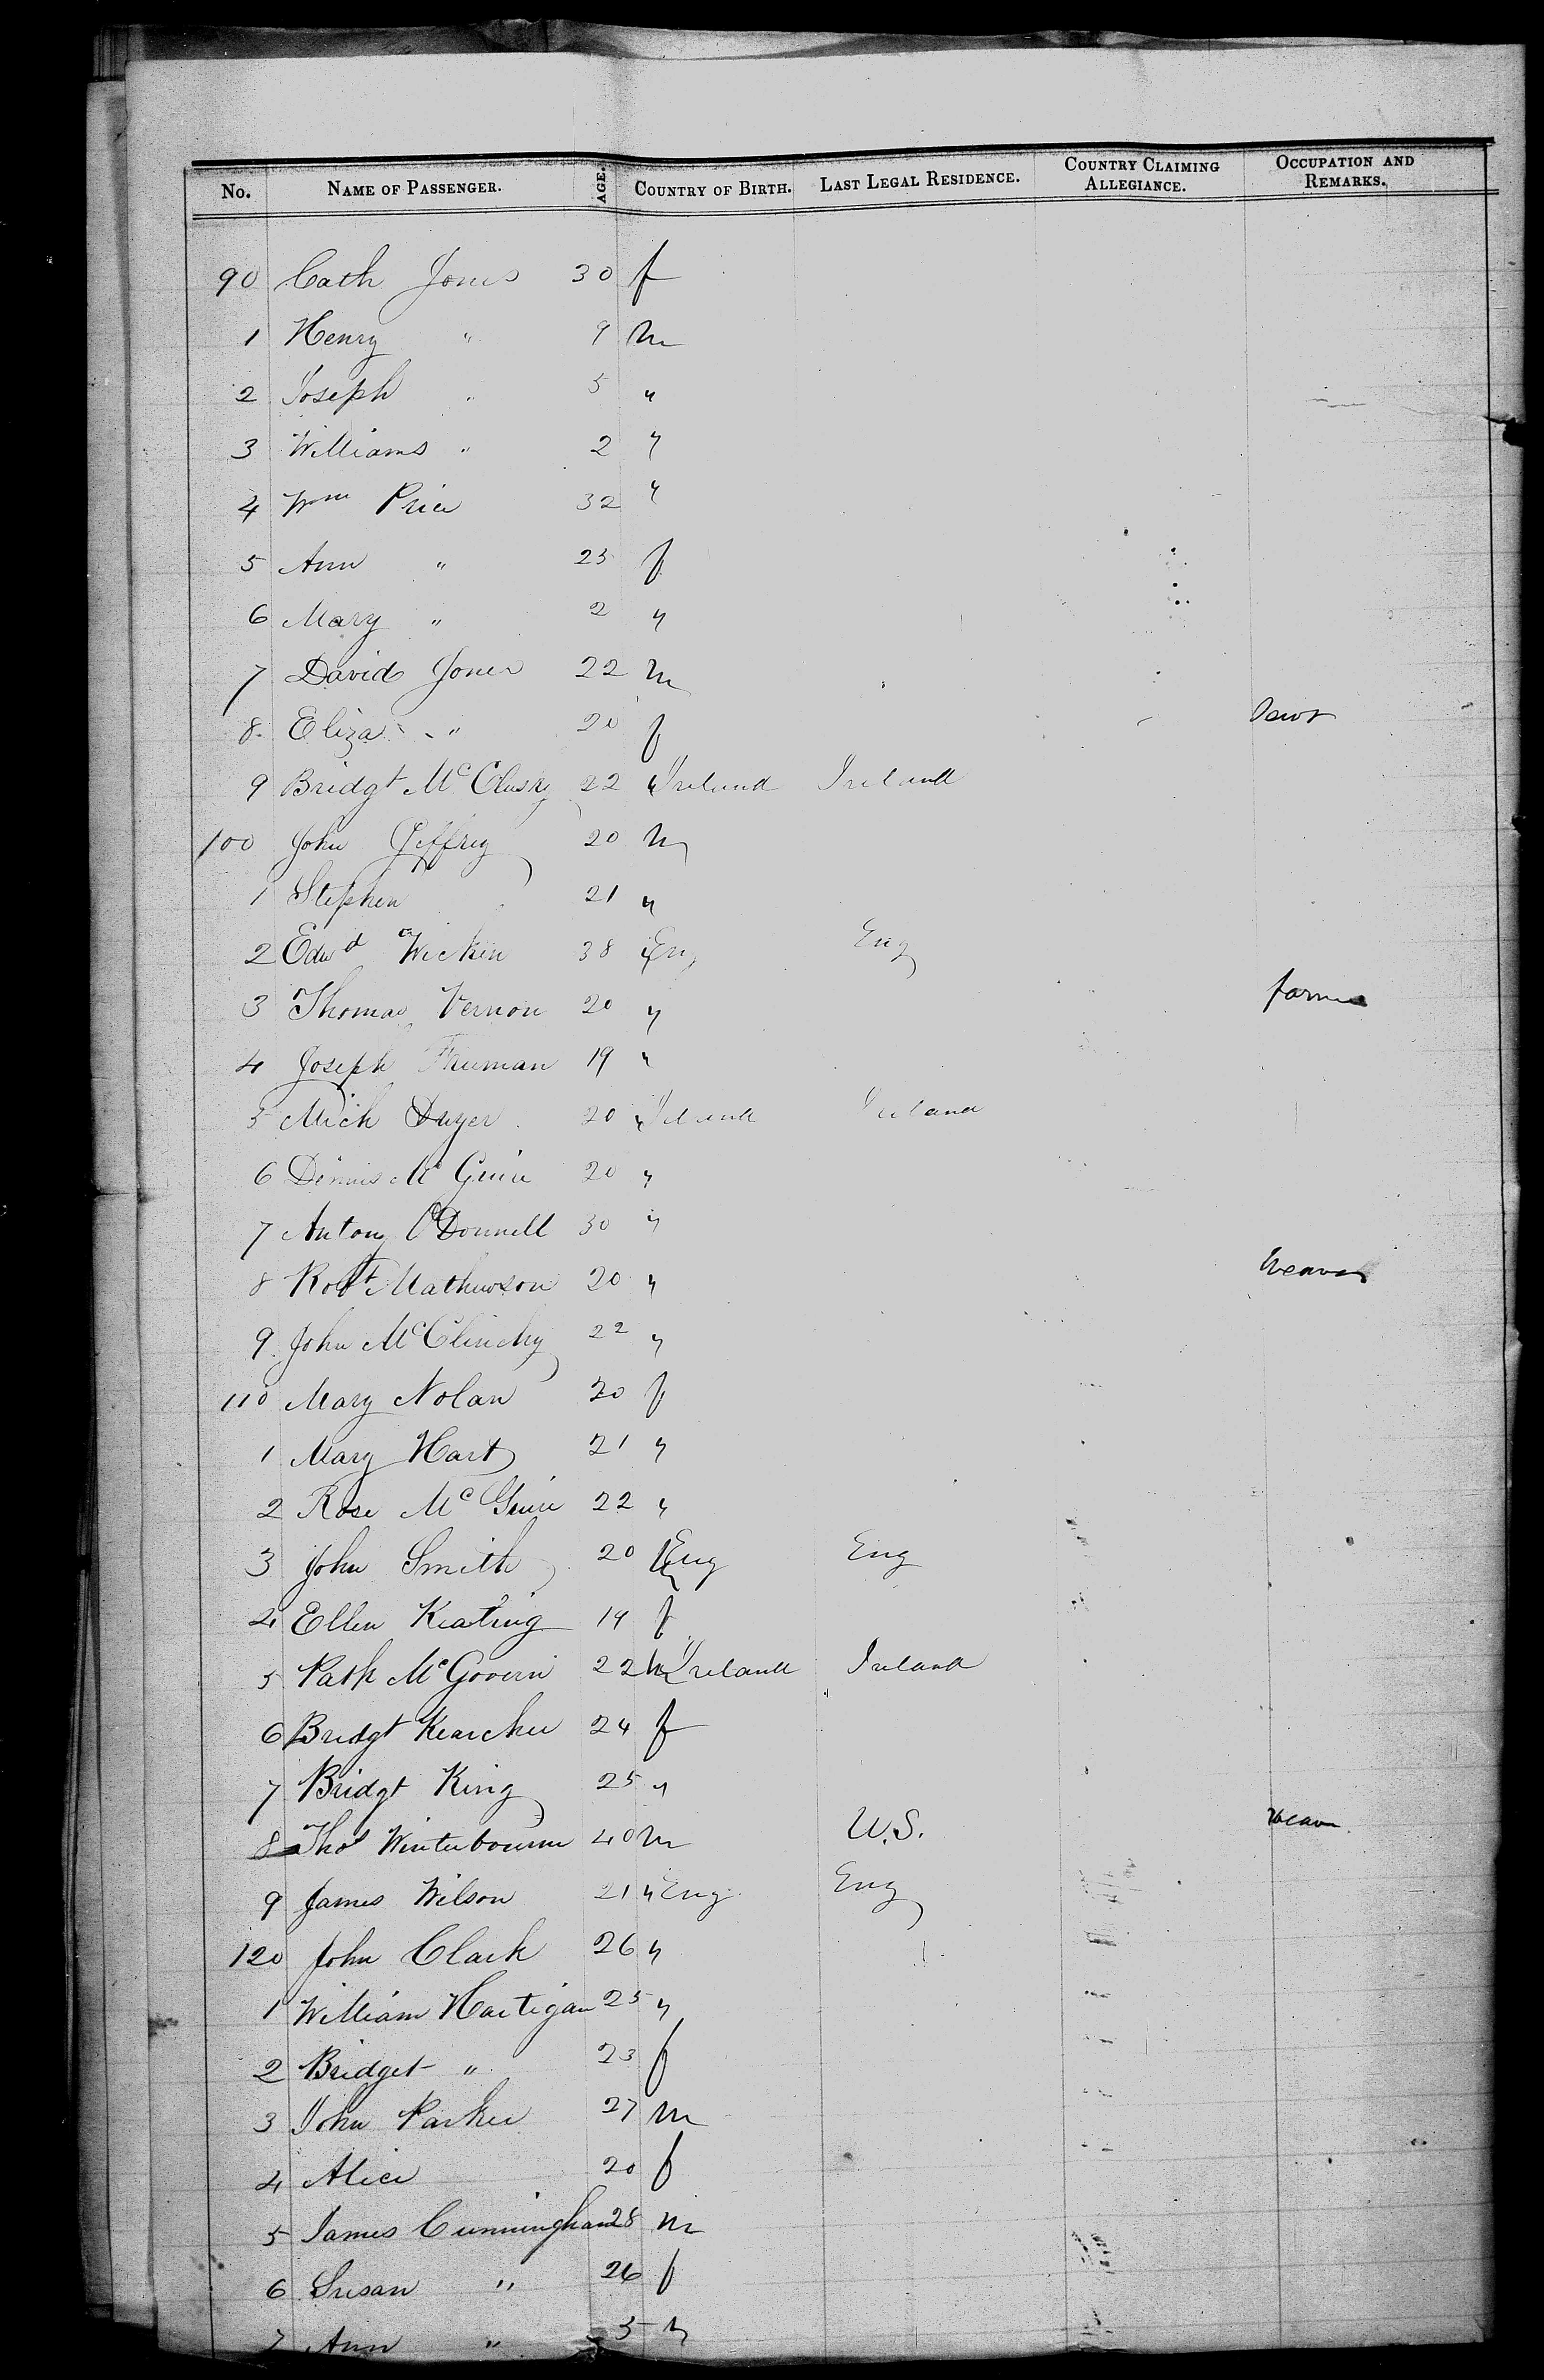 No. Name of Passenger. Age. Country of Birth. Last Legal Residence. Country Claiming Allegiance. Occupation and Remarks.
90 Cath Jones 30 f
1 Henry " 9 m
2 Joseph " 5 "
3 Williams " 2 "
4 Wm Price 32 "
5 Ann " 25 f
6 Mary " 2 "
7 David Jones 22 m
8 Eliza " 20 f
9 Bridgt McClusky 22 " Ireland Ireland
100 John Jeffrey 20 m
1 Stephen 21 "
2 Edwd Wicken 38 " Eng Eng
3 Thomas Vernon 20 " farmer
4 Joseph Freeman 19 "
5 Mich Dwyer 20 " Ireland Ireland
6 Dennis McGuire 20 "
7 Antony O'Donnell 30 "
8 Robt Mathewson 20 " Weaver
9 John McClinchy 22 "
110 Mary Nolan 20 f
1 Mary Hart 21 "
2 Rose McGuire 22 "
3 John Smith 20 m Eng Eng
4 Ellen Keating 19 f
5 Patk McGovern 22 m Ireland Ireland
6 Bridgt Kearcher 24 f
7 Bridgt King 25 "
8 Thos Winterbourne 40 m U.S. Weaver
9 James Wilson 21 " Eng Eng
120 John Clark 26 "
1 William Hartigan 25 "
2 Bridget " 23 f
3 John Parker 27 m
4 Alice 20 f
5 James Cunningham 28 m
6 Susan " 26 f
7 Ann " 5 "